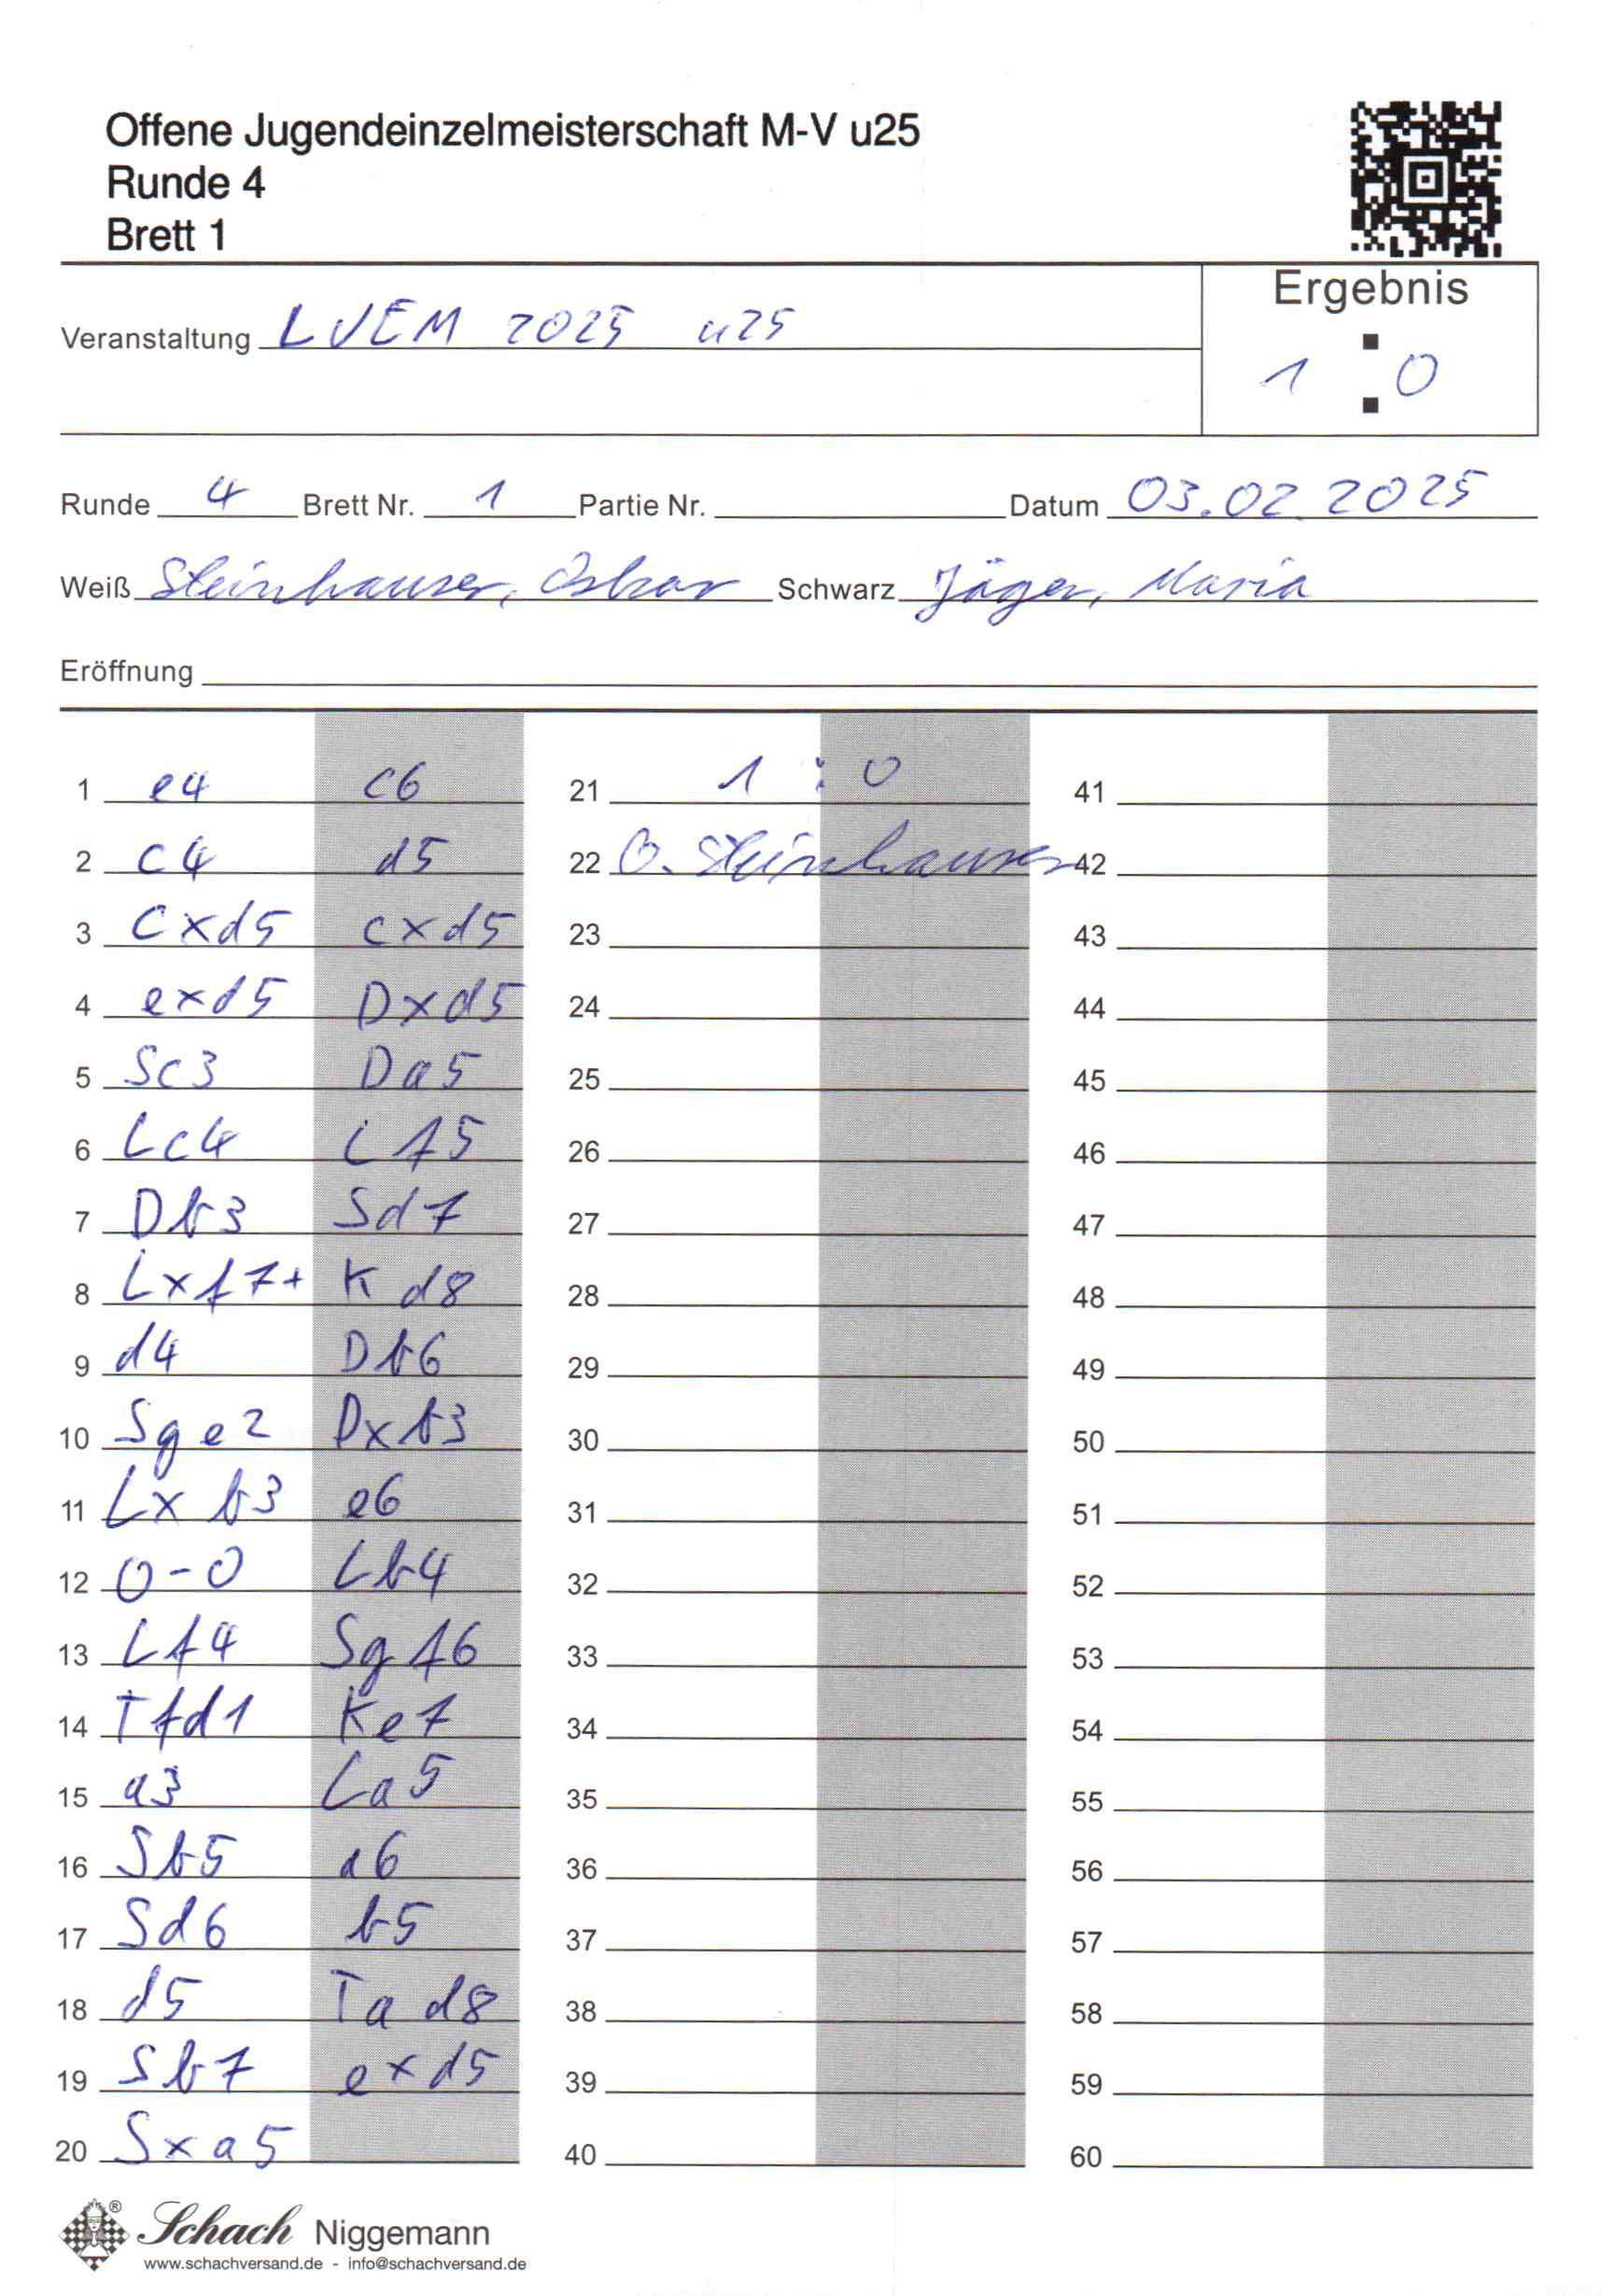 Offene Jugendeinzelmeisterschaft M-V u25
Runde 4
Brett 1
Ergebnis
1 : 0
Veranstaltung LJEM 2025 u25
Runde 4 Brett Nr. 1 Partie Nr. Datum 03.02.2025
Weiß Steinhauser, Oskar Schwarz Jäger, Maria
Eröffnung
1 e4 c6
2 c4 d5
3 cxd5 cxd5
4 exd5 Dxd5
5 Sc3 Da5
6 Lc4 Lf5
7 Db3 Sd7
8 Lxf7+ Kd8
9 d4 Db6
10 Sge2 Dxb3
11 Lxb3 e6
12 0-0 Lb4
13 Lf4 Sgf6
14 Tfd1 Ke7
15 a3 La5
16 Sb5 a6
17 Sd6 b5
18 d5 Tad8
19 Sb7 exd5
20 Sxa5
21 1 : 0
22 O. Steinhauser
23
24
25
26
27
28
29
30
31
32
33
34
35
36
37
38
39
40
41
42
43
44
45
46
47
48
49
50
51
52
53
54
55
56
57
58
59
60
® Schach Niggemann
www.schachversand.de - info@schachversand.de